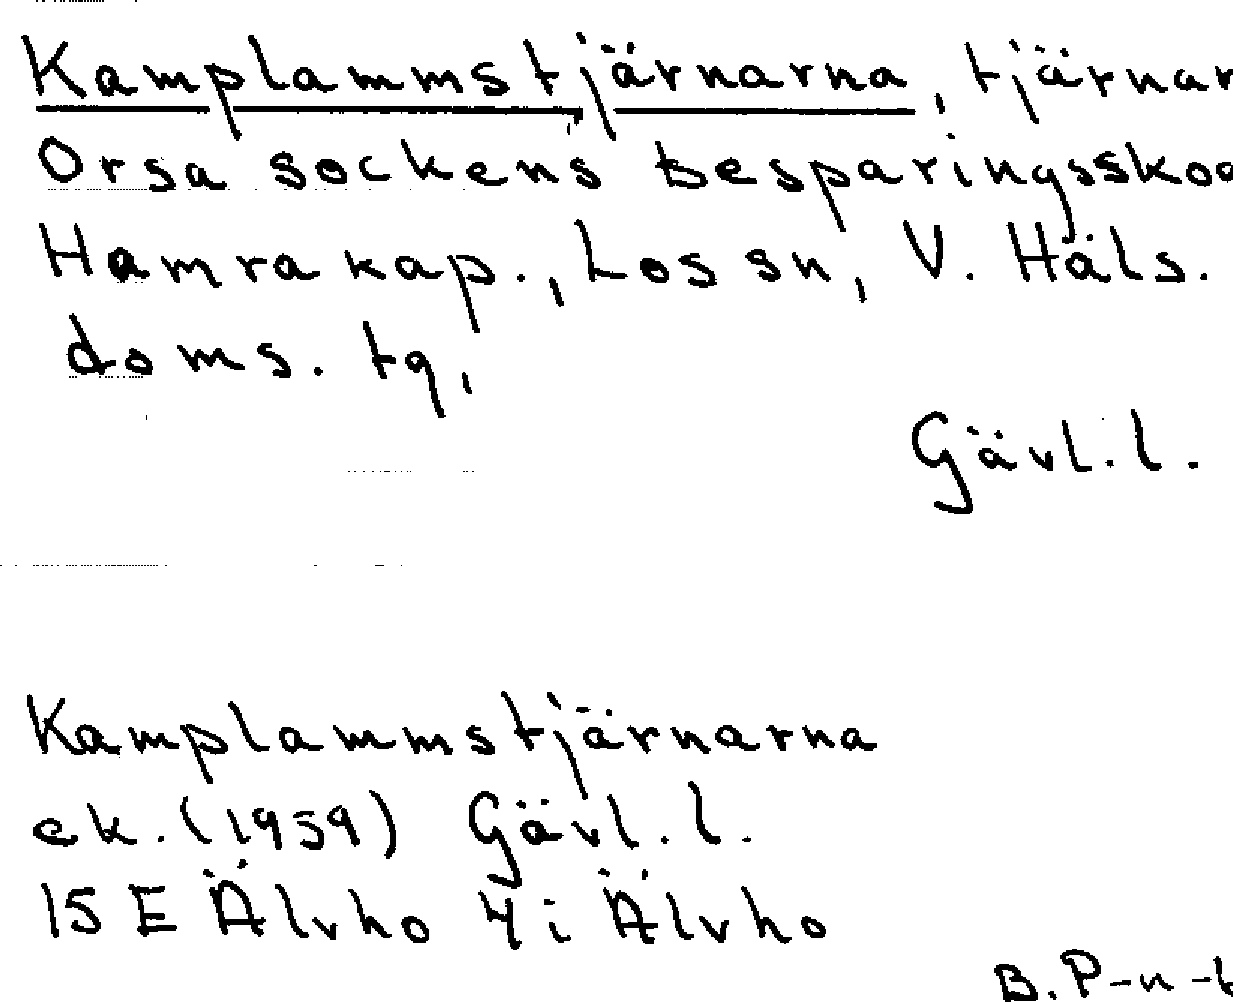 Kamplammstjärnarna, tjärnar
Orsa sockens besparingsskog
Hamra kap., Los sn, V. Häls.
doms. tg,
Gävl.l.
Kamplammstjärnarna
ek. (1959) Gävl.l.
15 E Älvho 4i Älvho
B. P-n-t